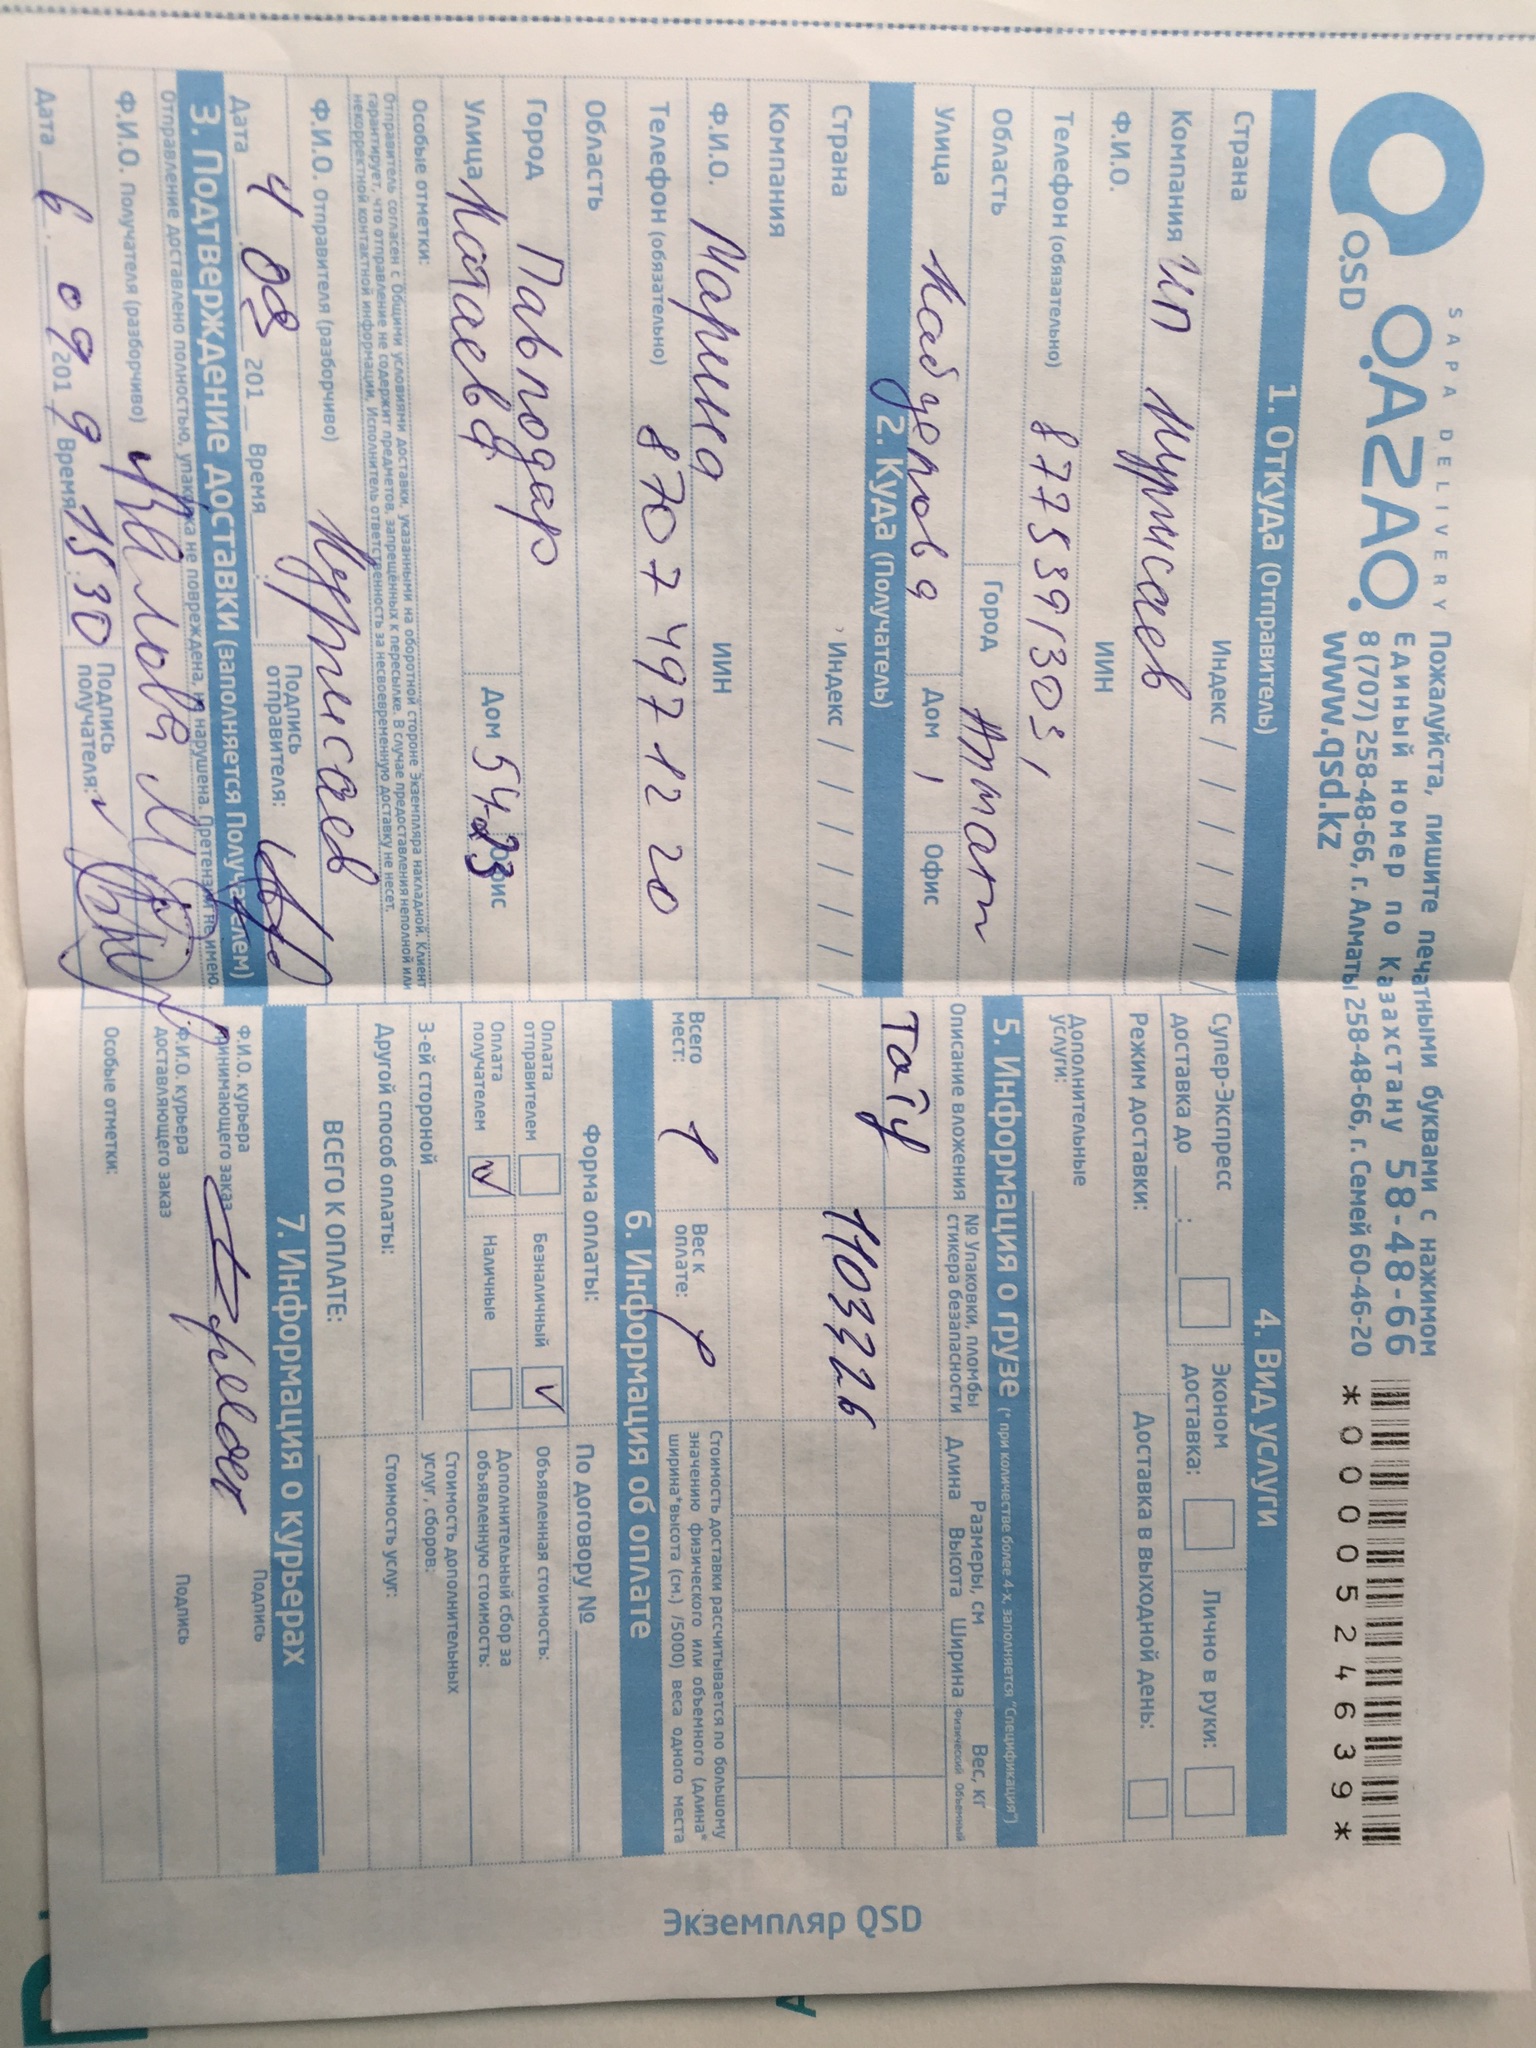 SAPA DELIVERY
QAZAQ
QSD
Пожалуйста, пишите печатными буквами с нажимом
Единый номер по Казахстану 58-48-66
8 (707) 258-48-66, г. Алматы 258-48-66, г. Семей 60-46-20
www.qsd.kz
*0000524639*
1. Откуда (Отправитель)
Страна Индекс / / / / / / /
Компания ИП Нурисаев
Ф.И.О. ИИН
Телефон (обязательно) 8775391303,
Область Город Алматы
Улица Дом 1 Офис
2. Куда (Получатель)
Страна Индекс / / / / / / /
Компания
Ф.И.О. Марина ИИН
Телефон (обязательно) 8707 497 12 20
Область
Город Павлодар
Улица Катаева Дом 54-23 Офис
Особые отметки:
Отправитель согласен с Общими условиями доставки, указанными на оборотной стороне Экземпляра накладной. Клиент
гарантирует, что отправление не содержит предметов, запрещённых к пересылке. В случае предоставления неполной или
некорректной контактной информации, Исполнитель ответственность за несвоевременную доставку не несет.
Ф.И.О. Отправителя (разборчиво) Нурисаев
Дата 4 09 201__ Время __:__ Подпись отправителя:
3. Подтверждение доставки (заполняется Получателем)
Отправление доставлено полностью, упаковка не повреждена, не нарушена. Претензий не имею.
Ф.И.О. получателя (разборчиво)
Дата 6 09 2019 Время 15:30 Подпись получателя:
4. Вид услуги
Супер-Экспресс доставка до __:__ Эконом доставка: Лично в руки:
Режим доставки: Доставка в выходной день:
Дополнительные услуги:
5. Информация о грузе (* при количестве более 4-х, заполняется "Спецификация")
Описание вложения № Упаковки, пломбы стикера безопасности Размеры, см Длина Высота Ширина Вес, кг Физический Объемный
Тату
1103226
Всего мест: 1 Вес к оплате:
Стоимость доставки рассчитывается по большому
значению физического или объемного (длина*
ширина*высота (см.) /5000) веса одного места
6. Информация об оплате
Форма оплаты: По договору №
Оплата отправителем Безналичный Объявленная стоимость:
Оплата получателем Наличные Дополнительный сбор за объявленную стоимость:
3-ей стороной Стоимость дополнительных услуг, сборов:
Другой способ оплаты: Стоимость услуг:
ВСЕГО К ОПЛАТЕ:
7. Информация о курьерах
Ф.И.О. курьера принимающего заказ Подпись
Ф.И.О. курьера доставляющего заказ Подпись
Особые отметки:
Экземпляр QSD